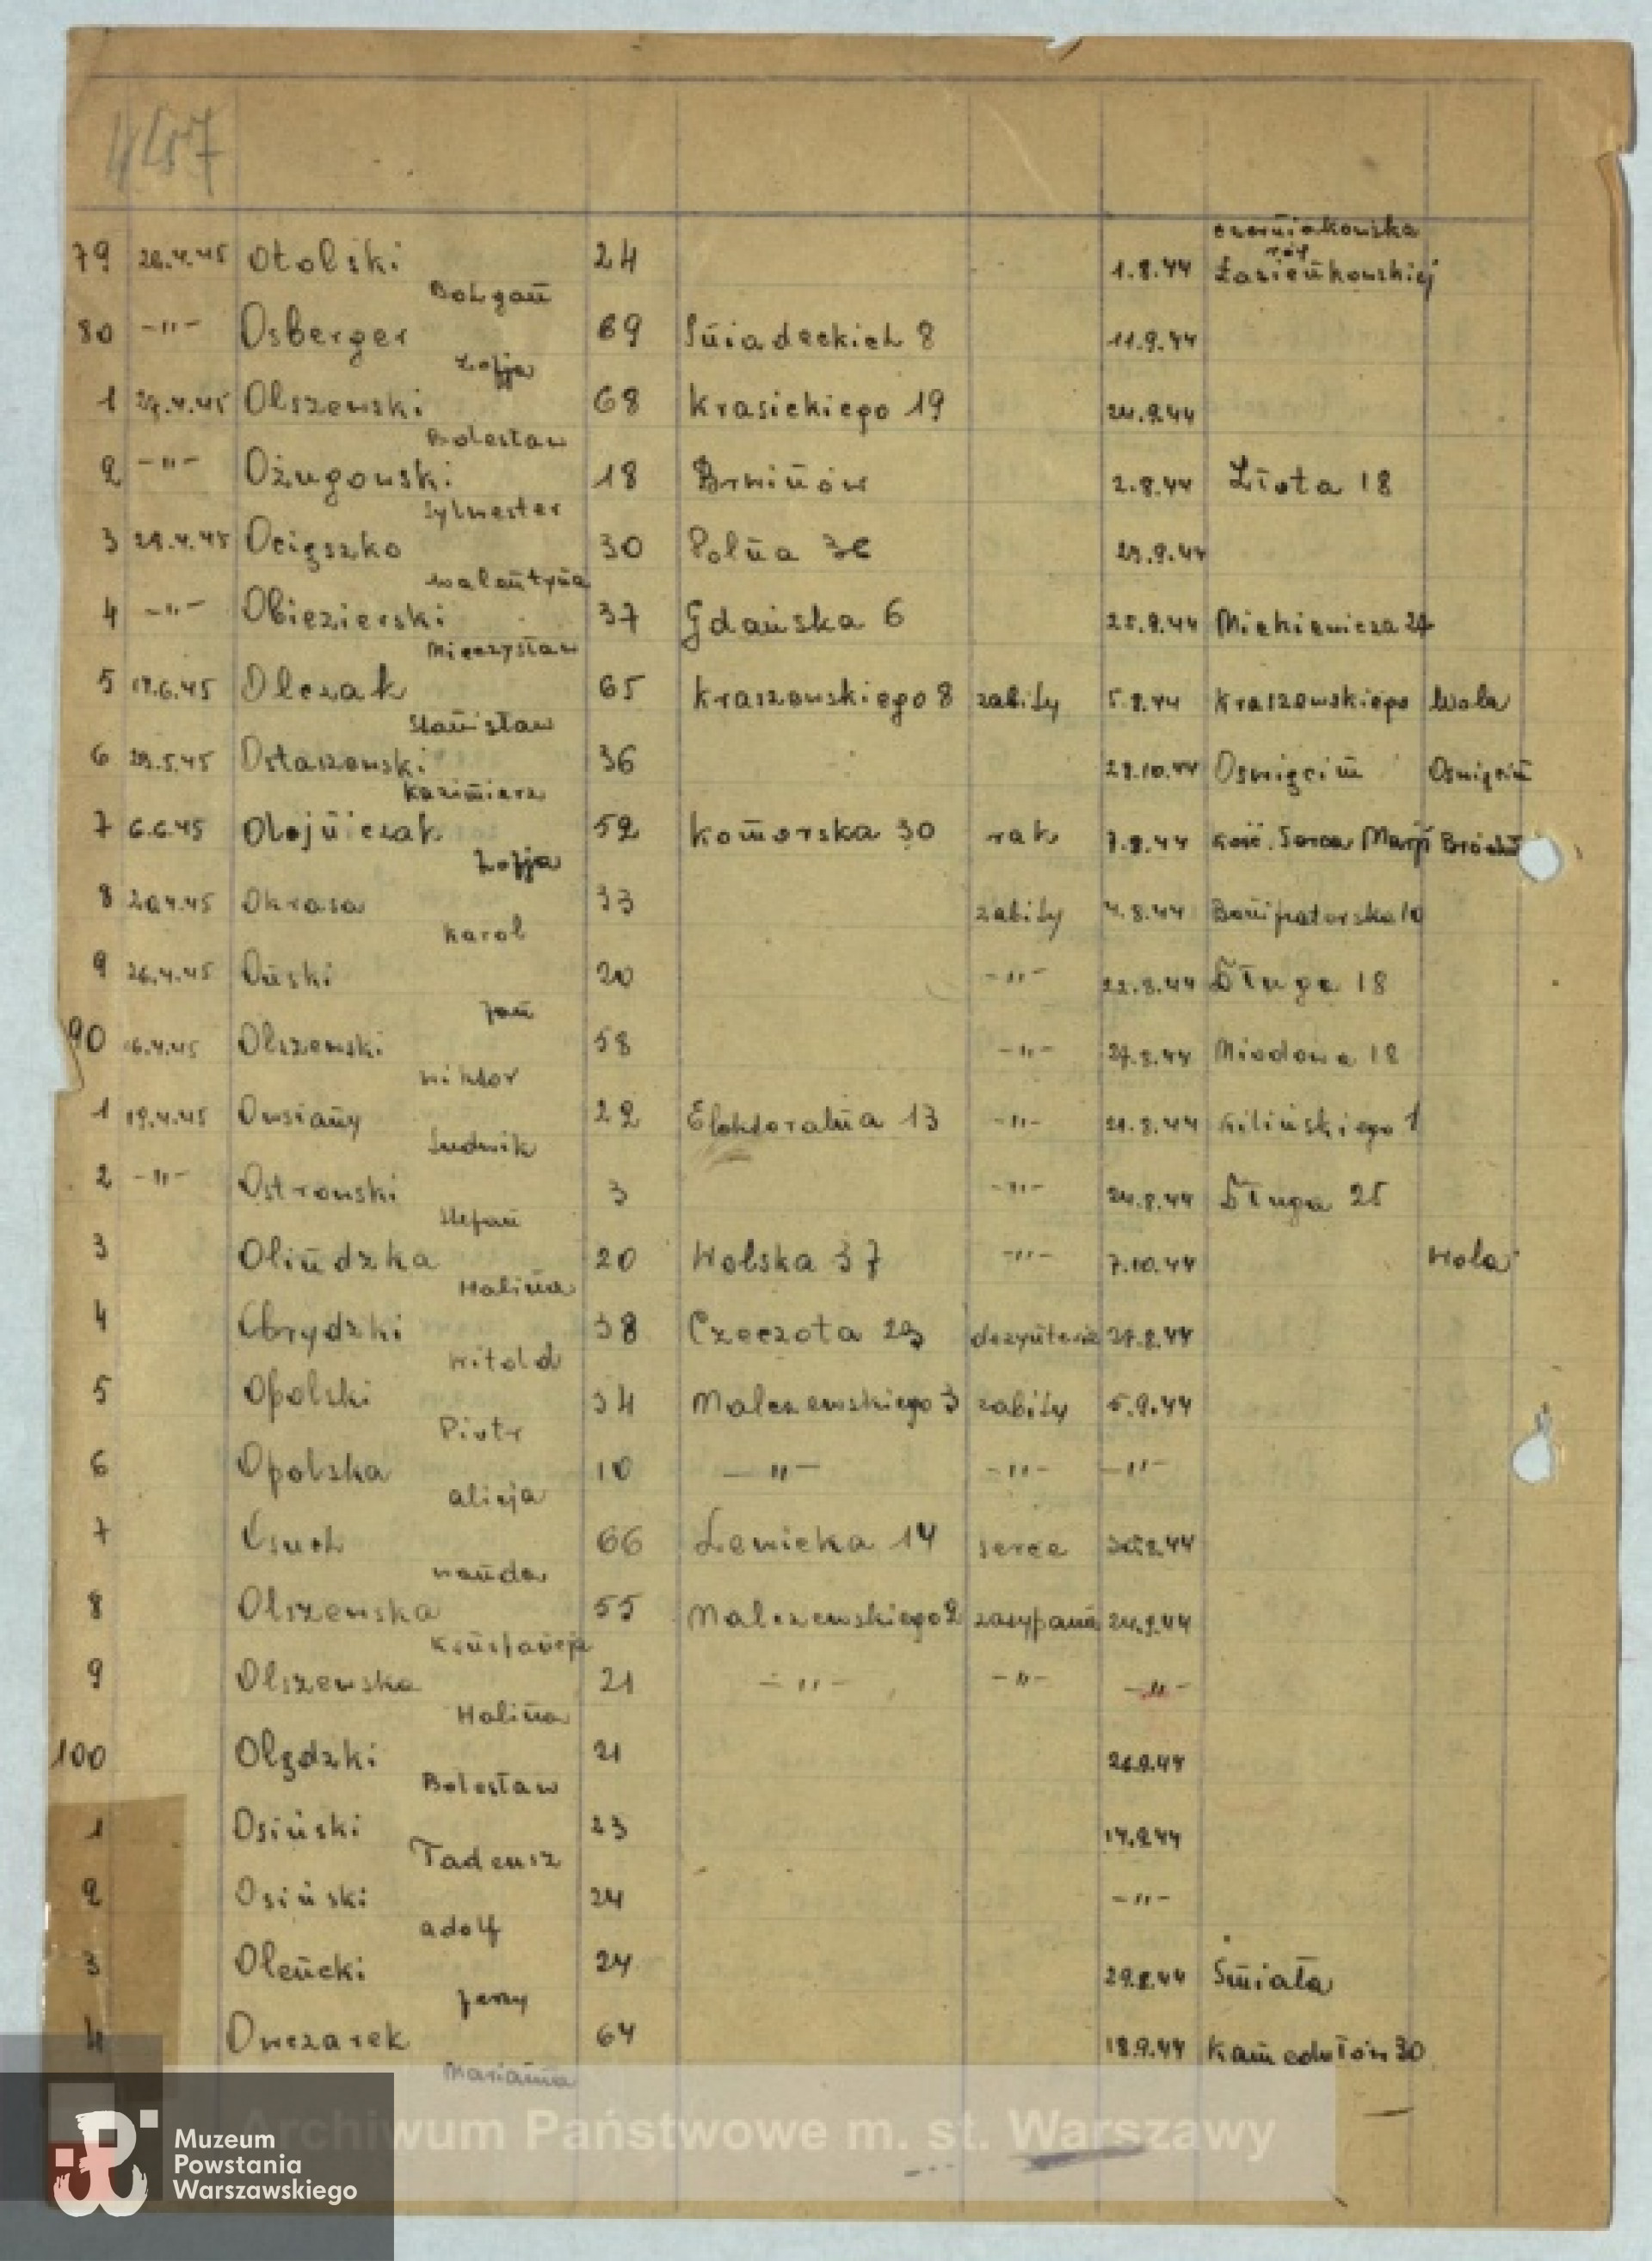 457
Czerniakowska
róg
79 26.4.45 Otolski 24 1.8.44 Łazienkowskiej
Bohgan
80 -"- Osberger 69 Śniadeckich 8 11.9.44
Zofja
1 27.4.45 Olszewski 68 Krasickiego 19 24.9.44
Bolesław
2 -"- Ożugowski 18 Brwinów 2.8.44 Złota 18
Sylwester
3 29.4.45 Ocięszko 30 Polna 29.9.44
Walentyna
4 -"- Obiezierski 37 Gdańska 6 25.9.44 Mickiewicza 24
Mieczysław
5 19.6.45 Olczak 65 Kraszewskiego 8 zabity 5.8.44 Kraszewskiego Wola
Stanisław
6 29.5.45 Ostaszewski 36 29.10.44 Oswięcim Oswięcim
Kazimierz
7 6.6.45 Olejniczak 52 Komorska 30 rak 7.8.44 Kość. Serca Marji
Zofja
8 20.4.45 Okrasa 33 zabity 4.8.44 Bonifraterska 10
Karol
9 26.4.45 Oński 20 -"- 22.8.44 Długa 18
Jan
90 16.4.45 Olszewski 58 -"- 27.8.44 Miodowa 18
Wiktor
1 19.4.45 Owsiany 22 Elektoralna 13 -"- 21.8.44 Kilińskiego 1
Ludwik
2 -"- Ostrowski 3 -"- 24.8.44 Długa 25
Stefan
3 Olindzka 20 Wolska 37 -"- 7.10.44 Wola
Halina
4 Obrydzki 38 Czeczota 23 dezynteria 27.8.44
Witold
5 Opolski 34 Malczewskiego 3 zabity 5.9.44
Piotr
6 Opolska 10 -"- -"- -"-
Alicja
7 Osuch 66 Lewicka 14 serce
Wanda
8 Olszewska 55 Malczewskiego 2 zasypana 24.9.44
Konstancja
9 Olszewska 21 -"- -"- -"-
Halina
100 Olędzki 21 26.9.44
Bolesław
1 Osiński 23 14.9.44
Tadeusz
2 Osiński 24 -"-
Adolf
3 Olencki 24 29.8.44 Śmiała
Jerzy
4 Owczarek 64 18.9.44 Kamedułów 30
Marianna
Archiwum Państwowe m. st. Warszawy
Muzeum
Powstania
Warszawskiego